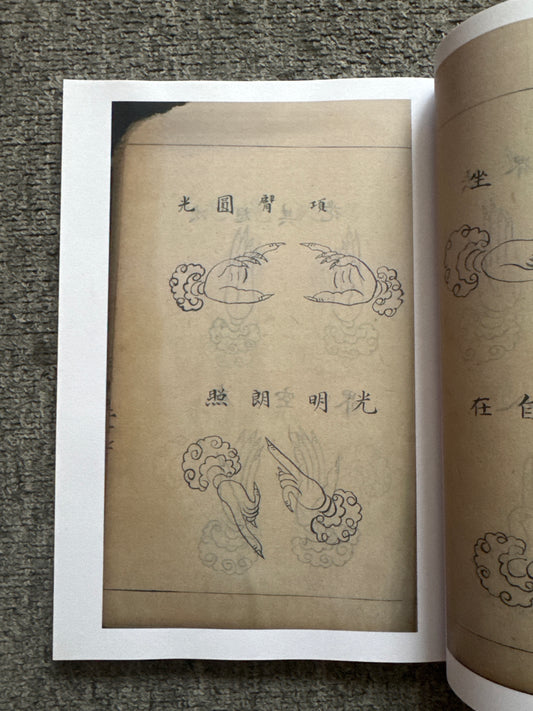 項臂圓光
光明朗照
坐
自在